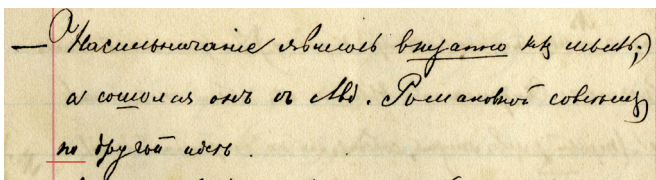 — Насильничание явилось внезапно какъ мысль;
а сошолся онъ съ Авд. Романовной совсемъ
по другой идеѣ.